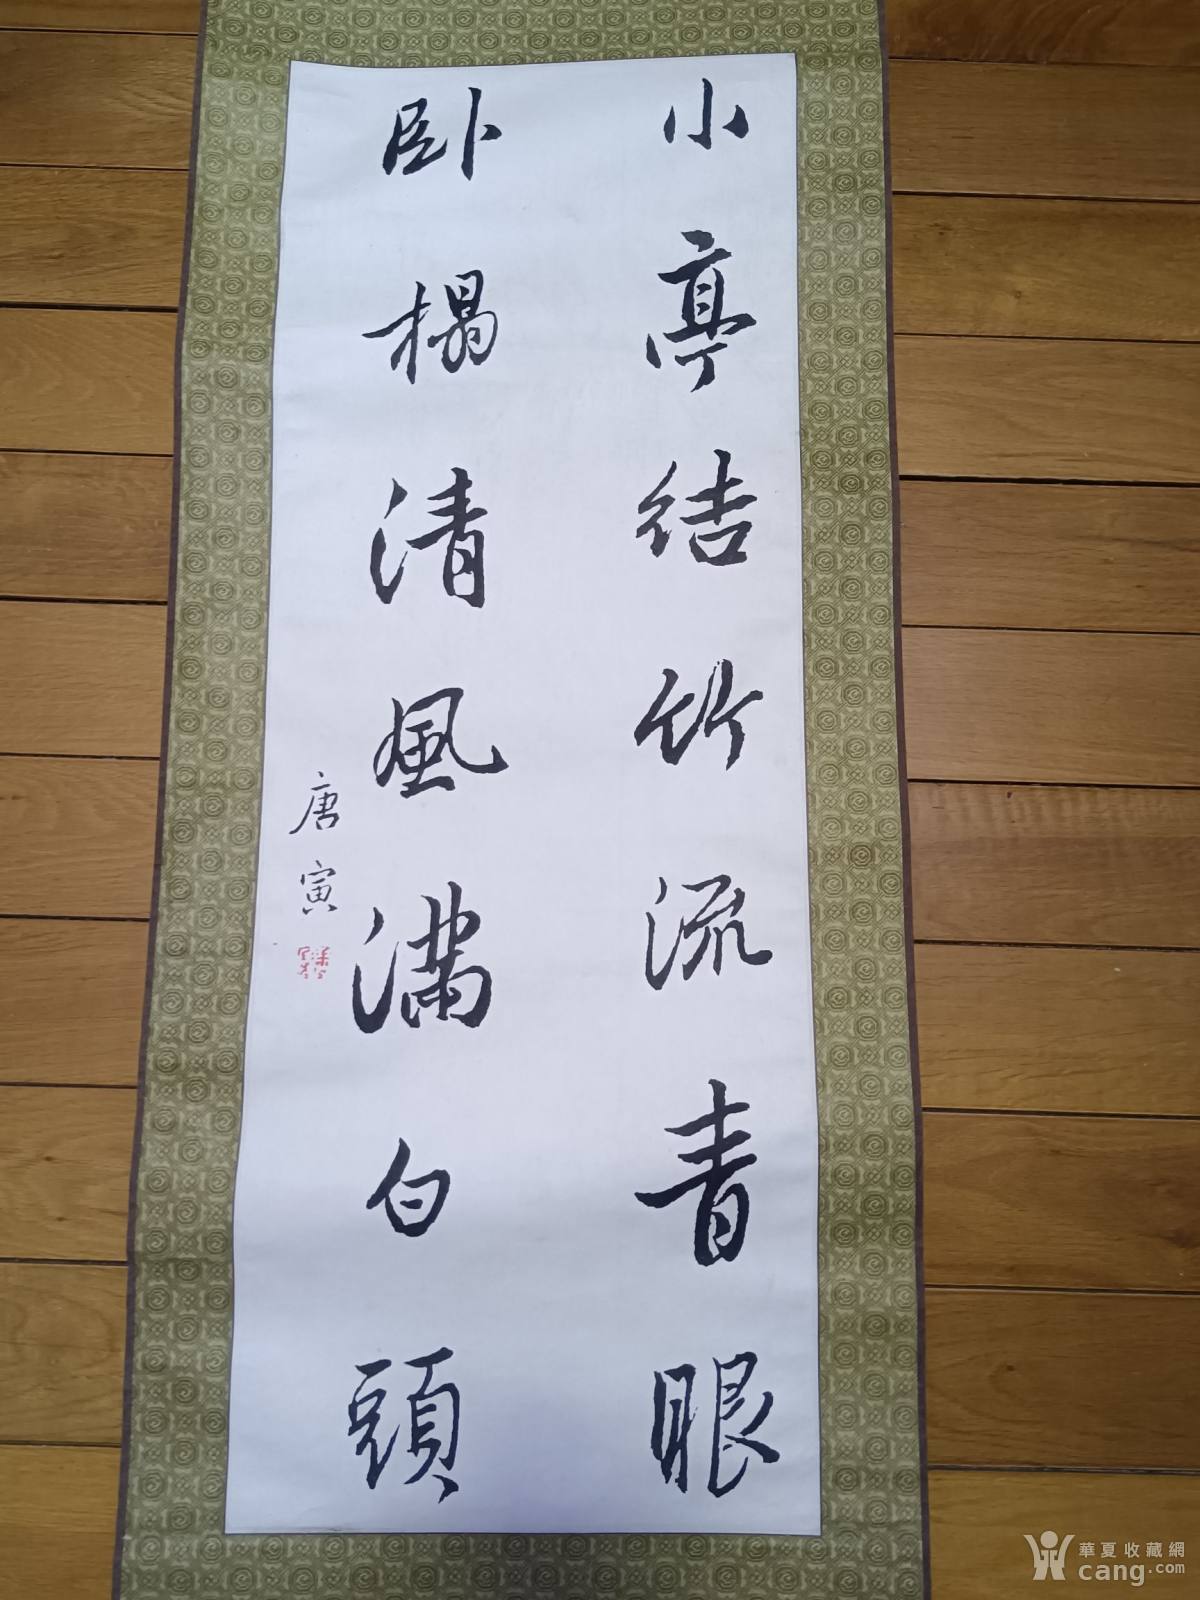 小亭结竹流青眼
卧榻清風满白頭
唐寅
華夏收藏網
cang.com